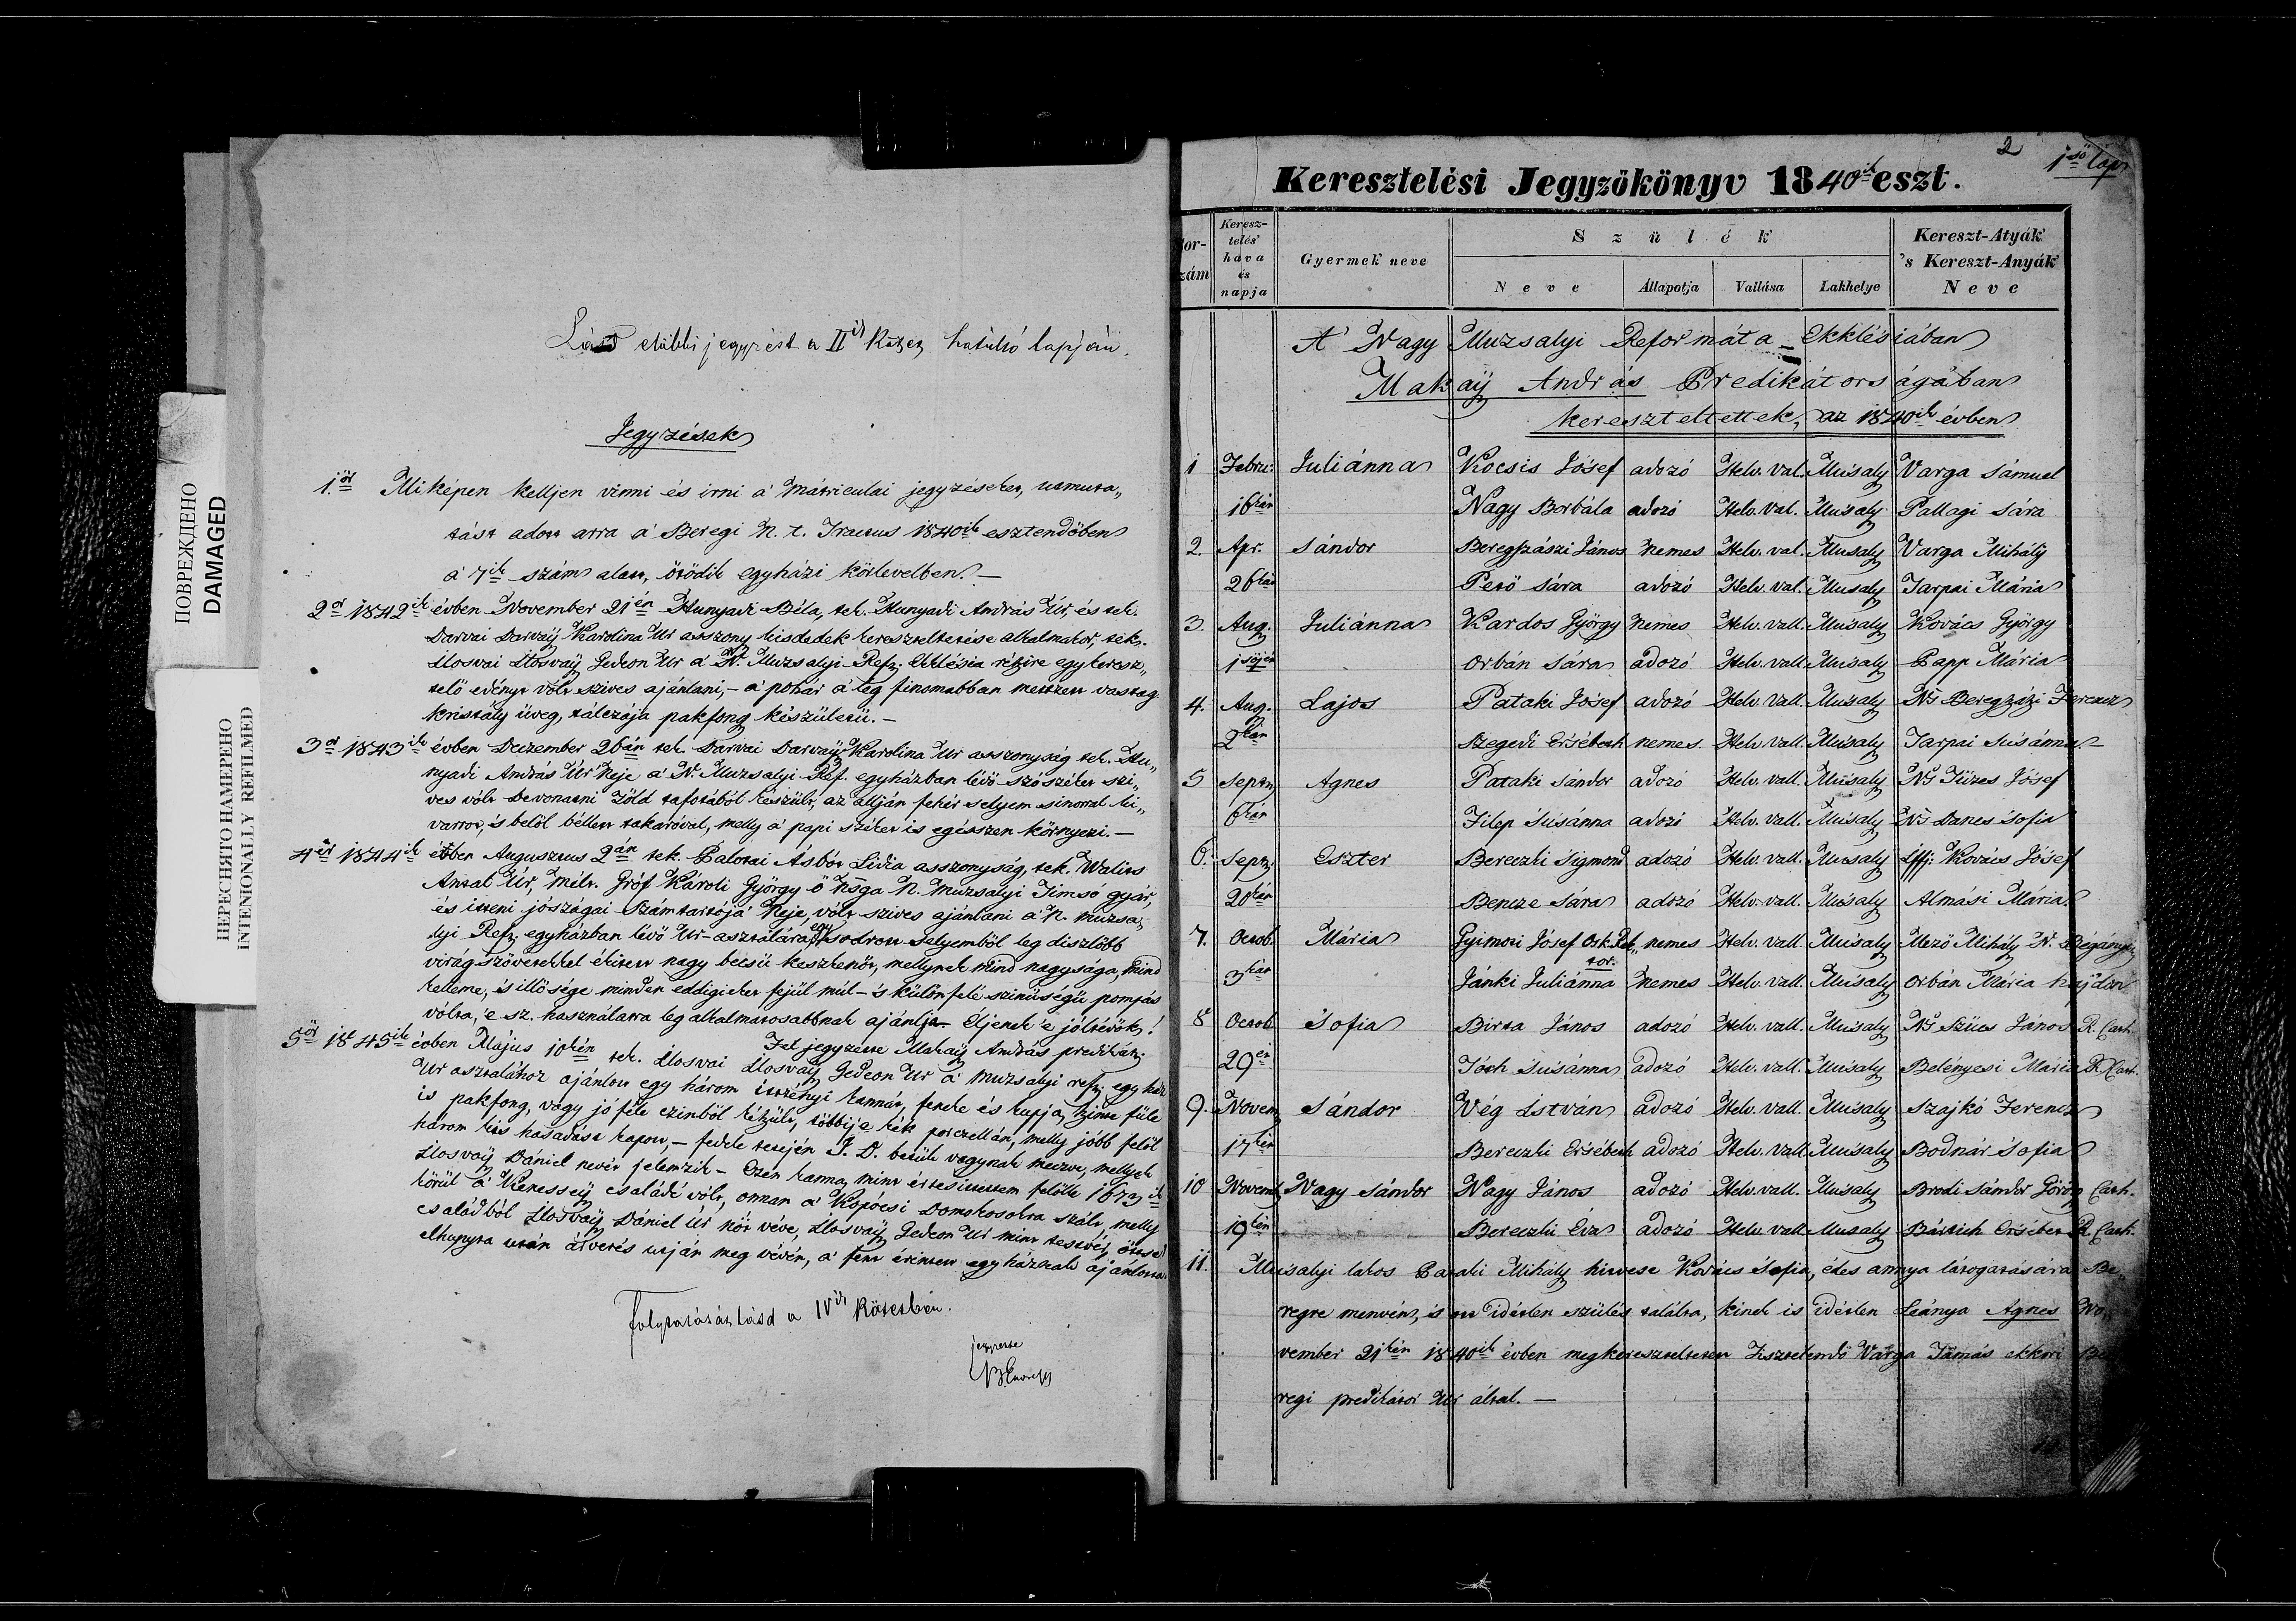 ПОВРЕЖДЕНО
DAMAGED
ПЕРЕСНЯТО НАМЕРЕНО
INTENIONALLY REFILMED
Lásd elábbi jegyzést a II ik Kötet hatulsó lapján.
Jegyzések
1.ör Miképen kelljen vinni és irni a' Mátriculai jegyzéseket, utmuta„
tást adott arra a' Beregi N. t. Tractus 1840ik esztendőben
a' 7ik szám alatt, ötödik egyházi körlevelben. —
2or 1842ik évben November 21én Hunyadi Béla, tek. Hunyadi András Úr, és tek.
Darvai Darvaÿ Karolina Ur asszony kisdedek kereszteltetése alkalmakor, tek.
Ilosvai Ilosvaÿ Gedeon Ur a' N. Muzsalyi Ref. Ekklésia részire egy keresz„
telő edényt vólt szives ajánlani, – a' pohár a' leg finomabban metszett vastag
kristály üveg, tálczája pakfong készületü. —
3or 1843ik évben December 26án tek. Darvai Darvaÿ Karolina Ur asszonyság tek. Hu„
nyadi András Úr Neje a' N. Muzsalyi Ref. egyházban lévő szószéket szi„
ves vólt Devonatni Zöld tafotából készült, az allján fehér selyem sinorral ki„
varrot, és belöl béllett takaróval, melly a' papi széket is egésszen környezi. —
4er 1844ik évben Augusztus 2án tek. Palotai Ásbót Lidia asszonyság, tek. Walits
Antal Úr, Mélt. Gróf Károli György ő Nsga N. Muzsalyi Timsó gyár,
és itteni jószágai Számtartója Neje, vólt szives ajánlani a' N. Muzsa„
lyi Ref. egyházban lévő Ur-asztalára egy sodrott selyemből leg diszlőbb
virágszövetekkel ékitett nagy becsü keszkenőt, mellynek mind nagysága, mind
kelleme, és illősége minden eddigieket fejül múl – 's különfélé szinűségü pompás
vólta, 'e sz. használatra leg alkalmatosabbnak ajánlja. Éljenek 'e jóltévők!
Fel jegyzette Makaÿ András predikát.
5ör 1845ik évben Május 10kén tek. Ilosvai Ilosvaÿ Gedeon Ur a' Muzsalyi ref. egyház
Ur asztalához ajánlott egy három itszényi kannát, feneke és kupja, szinte füle
is pakfong, vagy jó féle czinből készült, többije kék porczellán, melly jobb felöl
három kis hasadást kapott, – fedele tetején I. D. betük vagynak metzve, mellyek
Ilosvaÿ Dániel nevét jelentik – Ezen kanna, mint értesittettem felölle 1673ik
körül a' Kenesseÿ családé vólt, onnan a' Kopócsi Domokosokra szált, melly
családból Ilosvaÿ Dániel Úr nőt véve, Ilosvaÿ Gedeon Ur mint testvér öttse
elhunyta után átverés utján meg vévén, a' fent érintett egyháznak ajánlotta
Folytatását lásd a IV ik Kötetben.
jegyzette
2
1ső lap
Keresztelési Jegyzőkönyv 1840ik eszt.
Sor-
szám
Keresz-
telés'
hava
és
napja
Gyermek neve
Szülék
Neve Állapotja Vallása Lakhelye
Kereszt-Atyák
's Kereszt-Anyák
Neve
A' Nagy Muzsalyi Reformáta – Ekklésiában
Makaÿ András Predikátorságában
kereszteltettek, az 1840ik évben
1 Febru: Juliánna Kocsis Jósef adozó Helv. val. Musaly Varga Sámuel
16kán Nagy Borbála adozó Helv. val. Musaly Pallagi Sára
2. Apr. Sándor Beregszászi János Nemes Helv. val. Musaly Varga Mihály
26kán Pető Sára adozó Helv. val. Musaly Tarpai Mária
3. Aug. Juliánna Kardos György Nemes Helv. vall. Musaly Kovács György
1sőjén Orbán Sára adozó Helv. vall. Musaly Papp Mária
4. Aug. Lajos Pataki Jósef adozó Helv. vall. Musaly Ns Beregszászi Ferencz
2kán Szegedi Ersébeth nemes Helv. vall. Musaly Tarpai Susánna. —
5 Septr. Agnes Pataki Sándor adozó Helv. vall. Musaly Ns Tüzes Jósef
6kán Filep Susánna adozó Helv. vall. Musaly Ns Dancs Sofia
6. Sept. Eszter Bereczki Sigmond adozó Helv. vall. Musaly Iffj: Kovács Jósef
20kán Bencze Sára adozó Helv. vall. Musaly Almási Mária
7. Octob Mária Gyimoti Jósef Osk. Rek„ nemes Helv. vall. Musaly Mező Mihály N.
tor.
3kán Jánki Juliánna Nemes Helv. vall. Musaly Orbán Mária hajdon
8 Octob Sofia Birta János adozó Helv. vall. Musaly Ns Szücs János R. Cath.
29én Tóth Susánna adozó Helv. vall. Musaly Belényesi Mária R. Cath.
9. Novem Sándor Vég István adozó Helv. vall. Musaly Szajkó Ferencz
17kén Bereczki Ersébeth adozó Helv. vall. Musaly Bodnár Sofia
10 Novemb Nagy Sándor Nagy János adozó Helv. vall. Musaly Brodi Sándor Görög Cath.
19kén Bereczki Éva adozó Helv. vall. Musaly Ersébet R. Cath.
11. Musalyi lakos Pataki Mihály hitvese Kovács Sofia, édes annya látogatására Be„
regre menvén, is ott idétlen szülés találta, kinek is idétlen Leánya Agnes No„
vember 21kén 1840ik évben megkereszteltetett Tisztelendő Varga Tamás ekkori Be„
regi predikátor Ur által. —